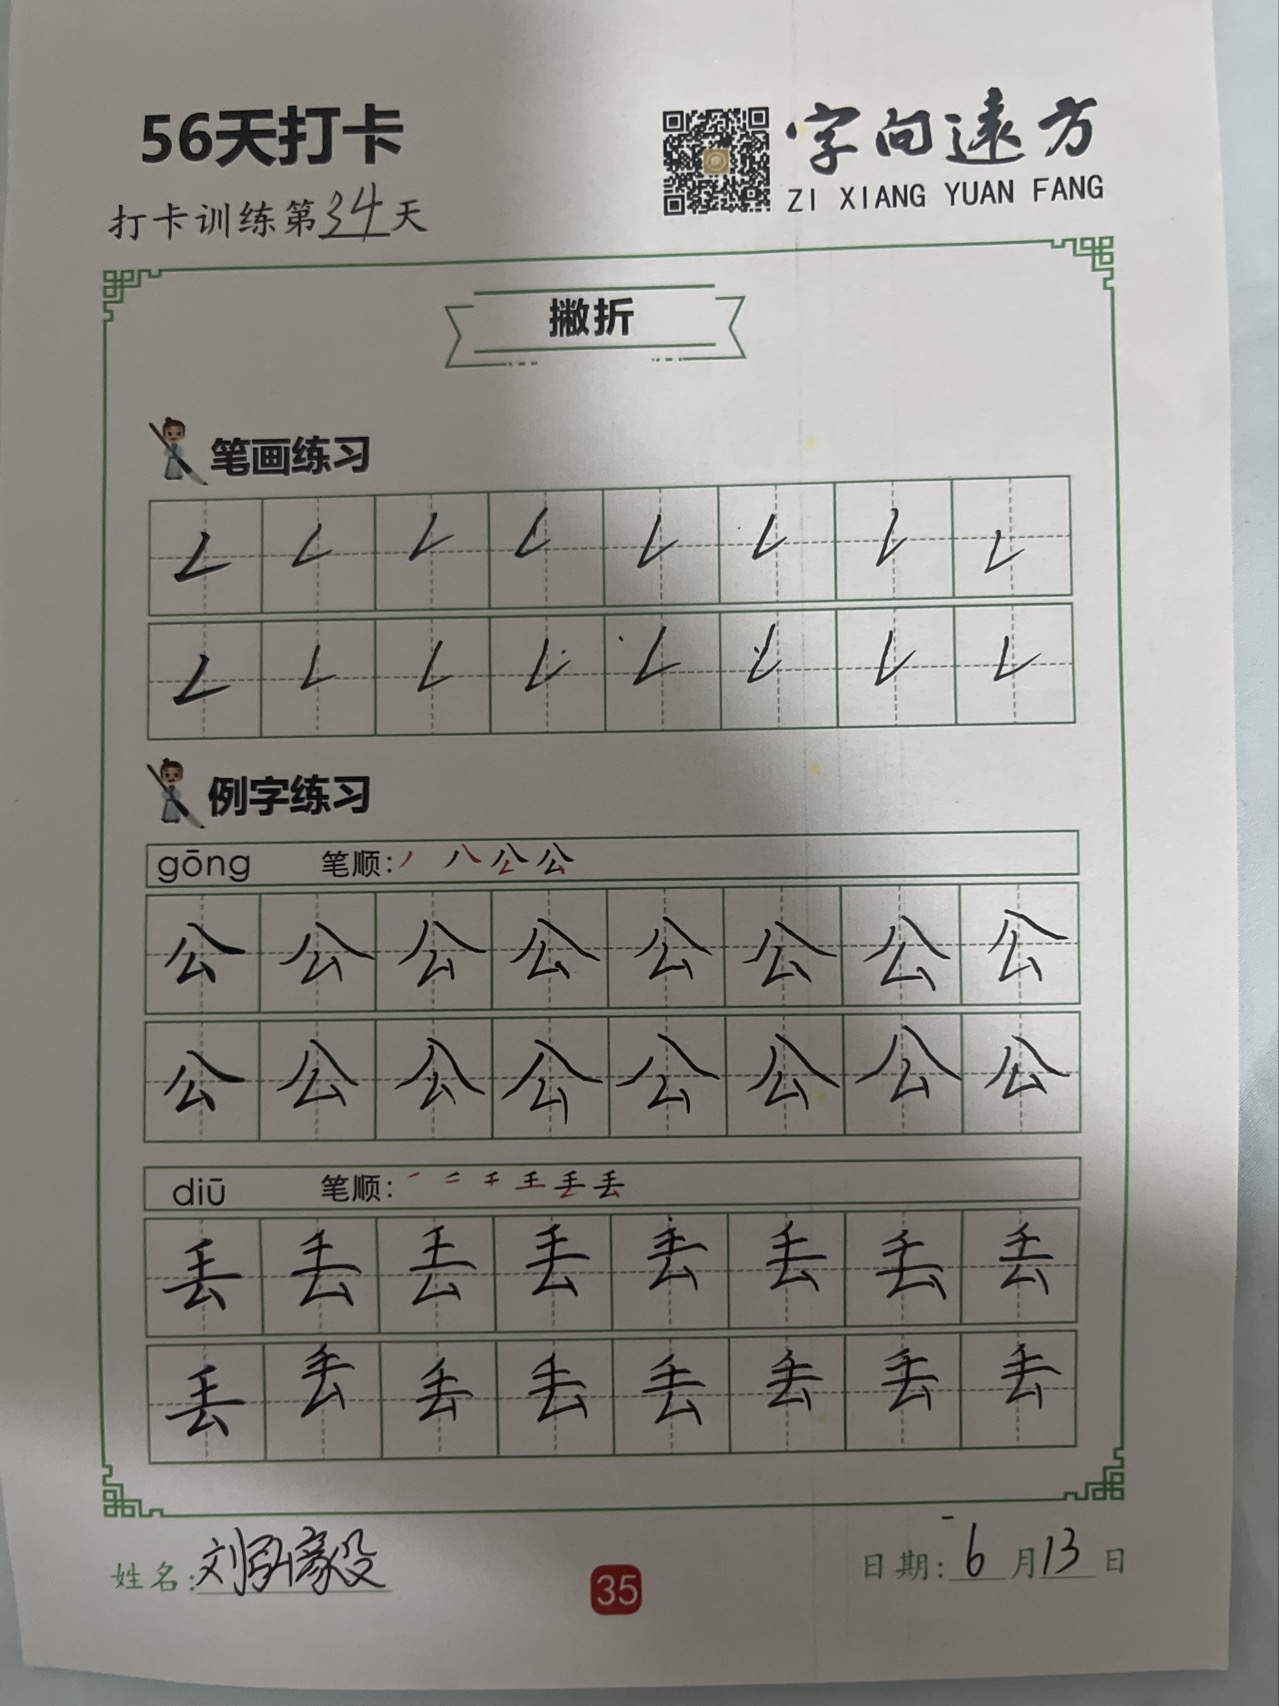 56天打卡
字向遠方
ZI XIANG YUAN FANG
打卡训练第34天
撇折
笔画练习
例字练习
gōng 笔顺:
公公公公公公公公
公公公公公公公公
diū 笔顺:
丢丢丢丢丢丢丢丢
丢丢丢丢丢丢丢丢
姓名:刘弘毅
35
日期:6月13日